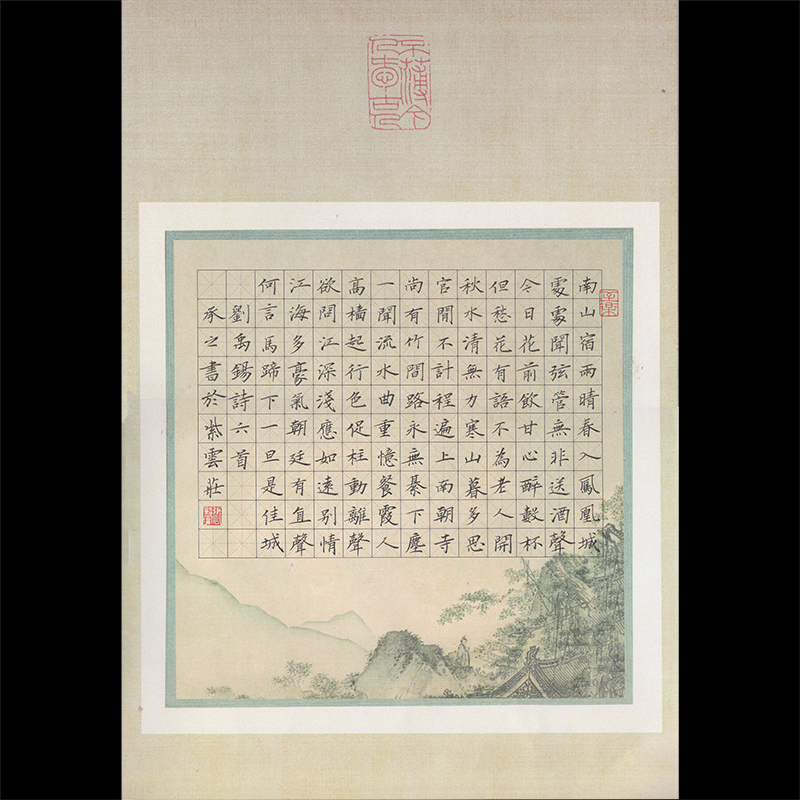 不薄今人愛古人
南山宿雨晴春入鳳凰城
處處聞弦管無非送酒聲
今日花前飲甘心醉數杯
但愁花有語不為老人開
秋水清無力寒山暮多思
官閒不計程遍上南朝寺
尚有竹間路永無綦下塵
一聞流水曲重憶餐霞人
高檣起行色促柱動離聲
欲問江深淺應如遠別情
江海多豪氣朝廷有直聲
何言馬蹄下一旦是佳城
劉禹錫詩六首
承之書於紫雲莊